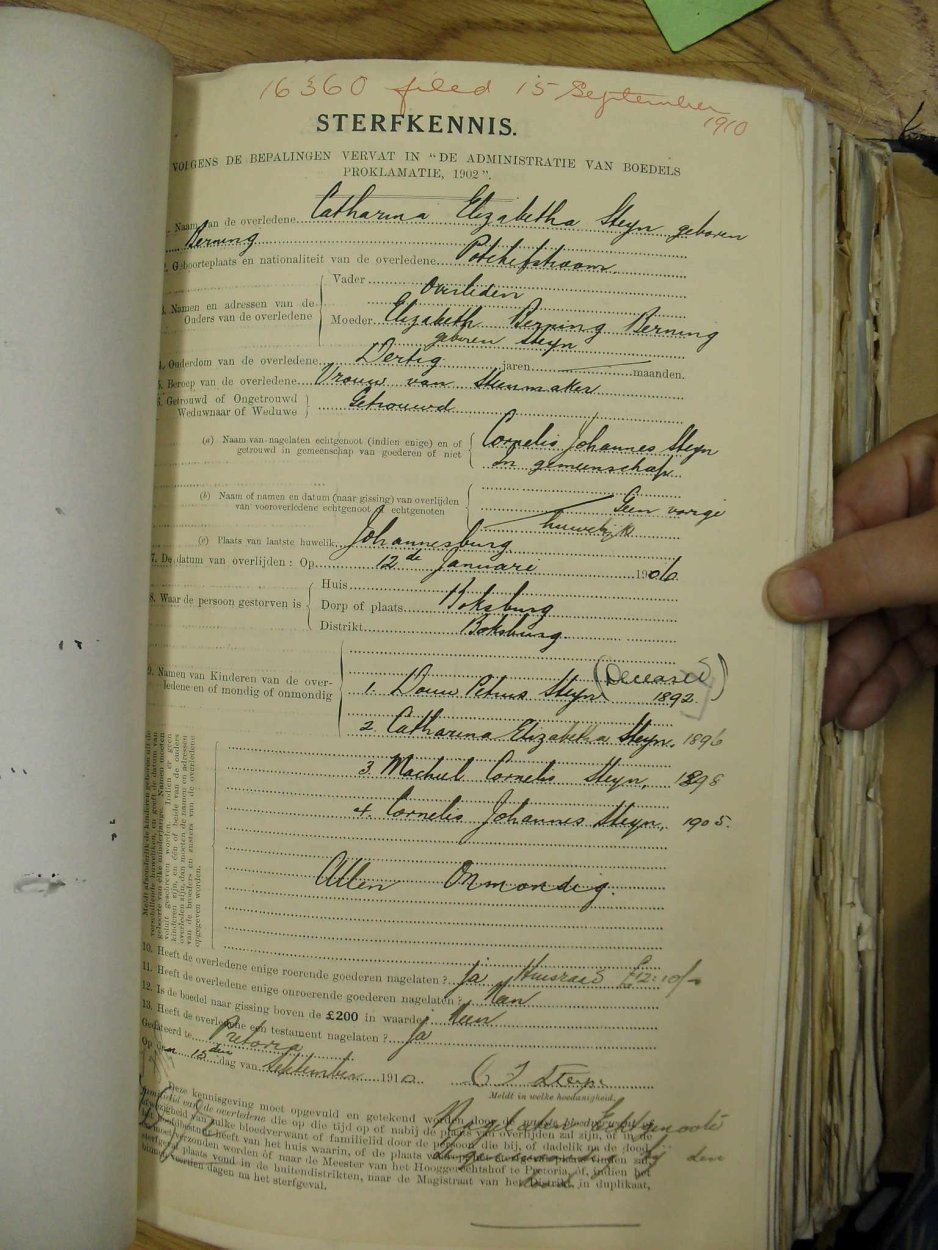 16360 filed 15 September
1910
STERFKENNIS.
VOLGENS DE BEPALINGEN VERVAT IN "DE ADMINISTRATIE VAN BOEDELS
PROKLAMATIE, 1902".
Naam van de overledene Catharina Elizabetha Steyn geboren
Berning
Geboorteplaats en nationaliteit van de overledene Potchefstroom
3. Namen en adressen van de Ouders van de overledene
Vader Overleden
Moeder Elizabeth Berning Berning
geboren Steyn
4. Ouderdom van de overledene Dertig jaren maanden.
5. Beroep van de overledene Vrouw van Steenmaker
6. Getrouwd of Ongetrouwd Weduwnaar of Weduwe Getrouwd
(a) Naam van nagelaten echtgenoot (indien enige) en of Cornelis Johannes Steyn
getrouwd in gemeenschap van goederen of niet In gemeenschap
(b) Naam of namen en datum (naar gissing) van overlijden Geen vorige
van vooroverledene echtgenoot of echtgenoten huwelijk
(c) Plaats van laatste huwelik Johannesburg
7. De datum van overlijden: Op 12de Januarie 1906
8. Waar de persoon gestorven is
Huis
Dorp of plaats Boksburg
Distrikt Boksburg
9. Namen van Kinderen van de overledene en of mondig of onmondig
(Deceased)
1. Douw Petrus Steyn 1892
2. Catharina Elizabetha Steyn, 1896
3 Machiel Cornelis Steyn, 1898
4. Cornelis Johannes Steyn, 1905.
Allen Onmondig.
10. Heeft de overledene enige roerende goederen nagelaten? Ja Huisraad £12:10/-
11. Heeft de overledene enige onroerende goederen nagelaten?
12. Is de boedel naar gissing boven de £200 in waarde? Neen
13. Heeft de overledene een testament nagelaten? Ja
Gedateerd te Pretoria
Op den 15den dag van September 1910 C J Steyn
Meldt in welke hoedanigheid.
Deze kennisgeving moet opgevuld en getekend worden door de
Nagelaten Echtgenoote
van de overledene die op die tijd op of nabij de plaats van overlijden zal zijn, of in de
afwezigheid van zulke bloedverwant of familielid door de persoon die bij, of dadelik na de dood,
het van het huis waarin, of de plaats waar
bij den
verzonden worden óf naar de Meester van het Hooggerechtshof te Pretoria, óf, indien het
sterfgeval plaats vond in de buitendistrikten, naar de Magistraat van het Distrikt in duplikaat,
binnen veertien dagen na het sterfgeval.